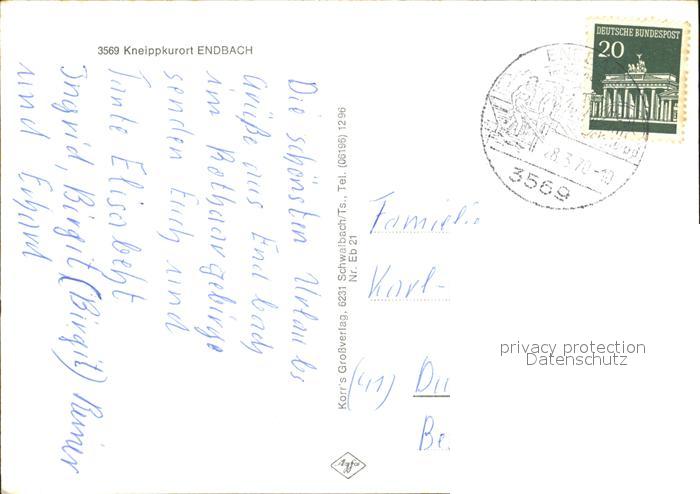 3569 Kneippkurort ENDBACH
Die schönsten Urlaubs
Grüße aus Endbach
im Rothaargebirge
senden Euch und
Tante Elisabeht
Ingrid, Birgit (Birgit) Reiner
und Erhard
Korr's Großverlag, 6231 Schwalbach/Ts., Tel. (06196) 1296
Nr. Eb 21
Agfa
DEUTSCHE BUNDESPOST
20
8.3.70-10
3569
Familie
Karl-
(41) Du
Be
privacy protection
Datenschutz